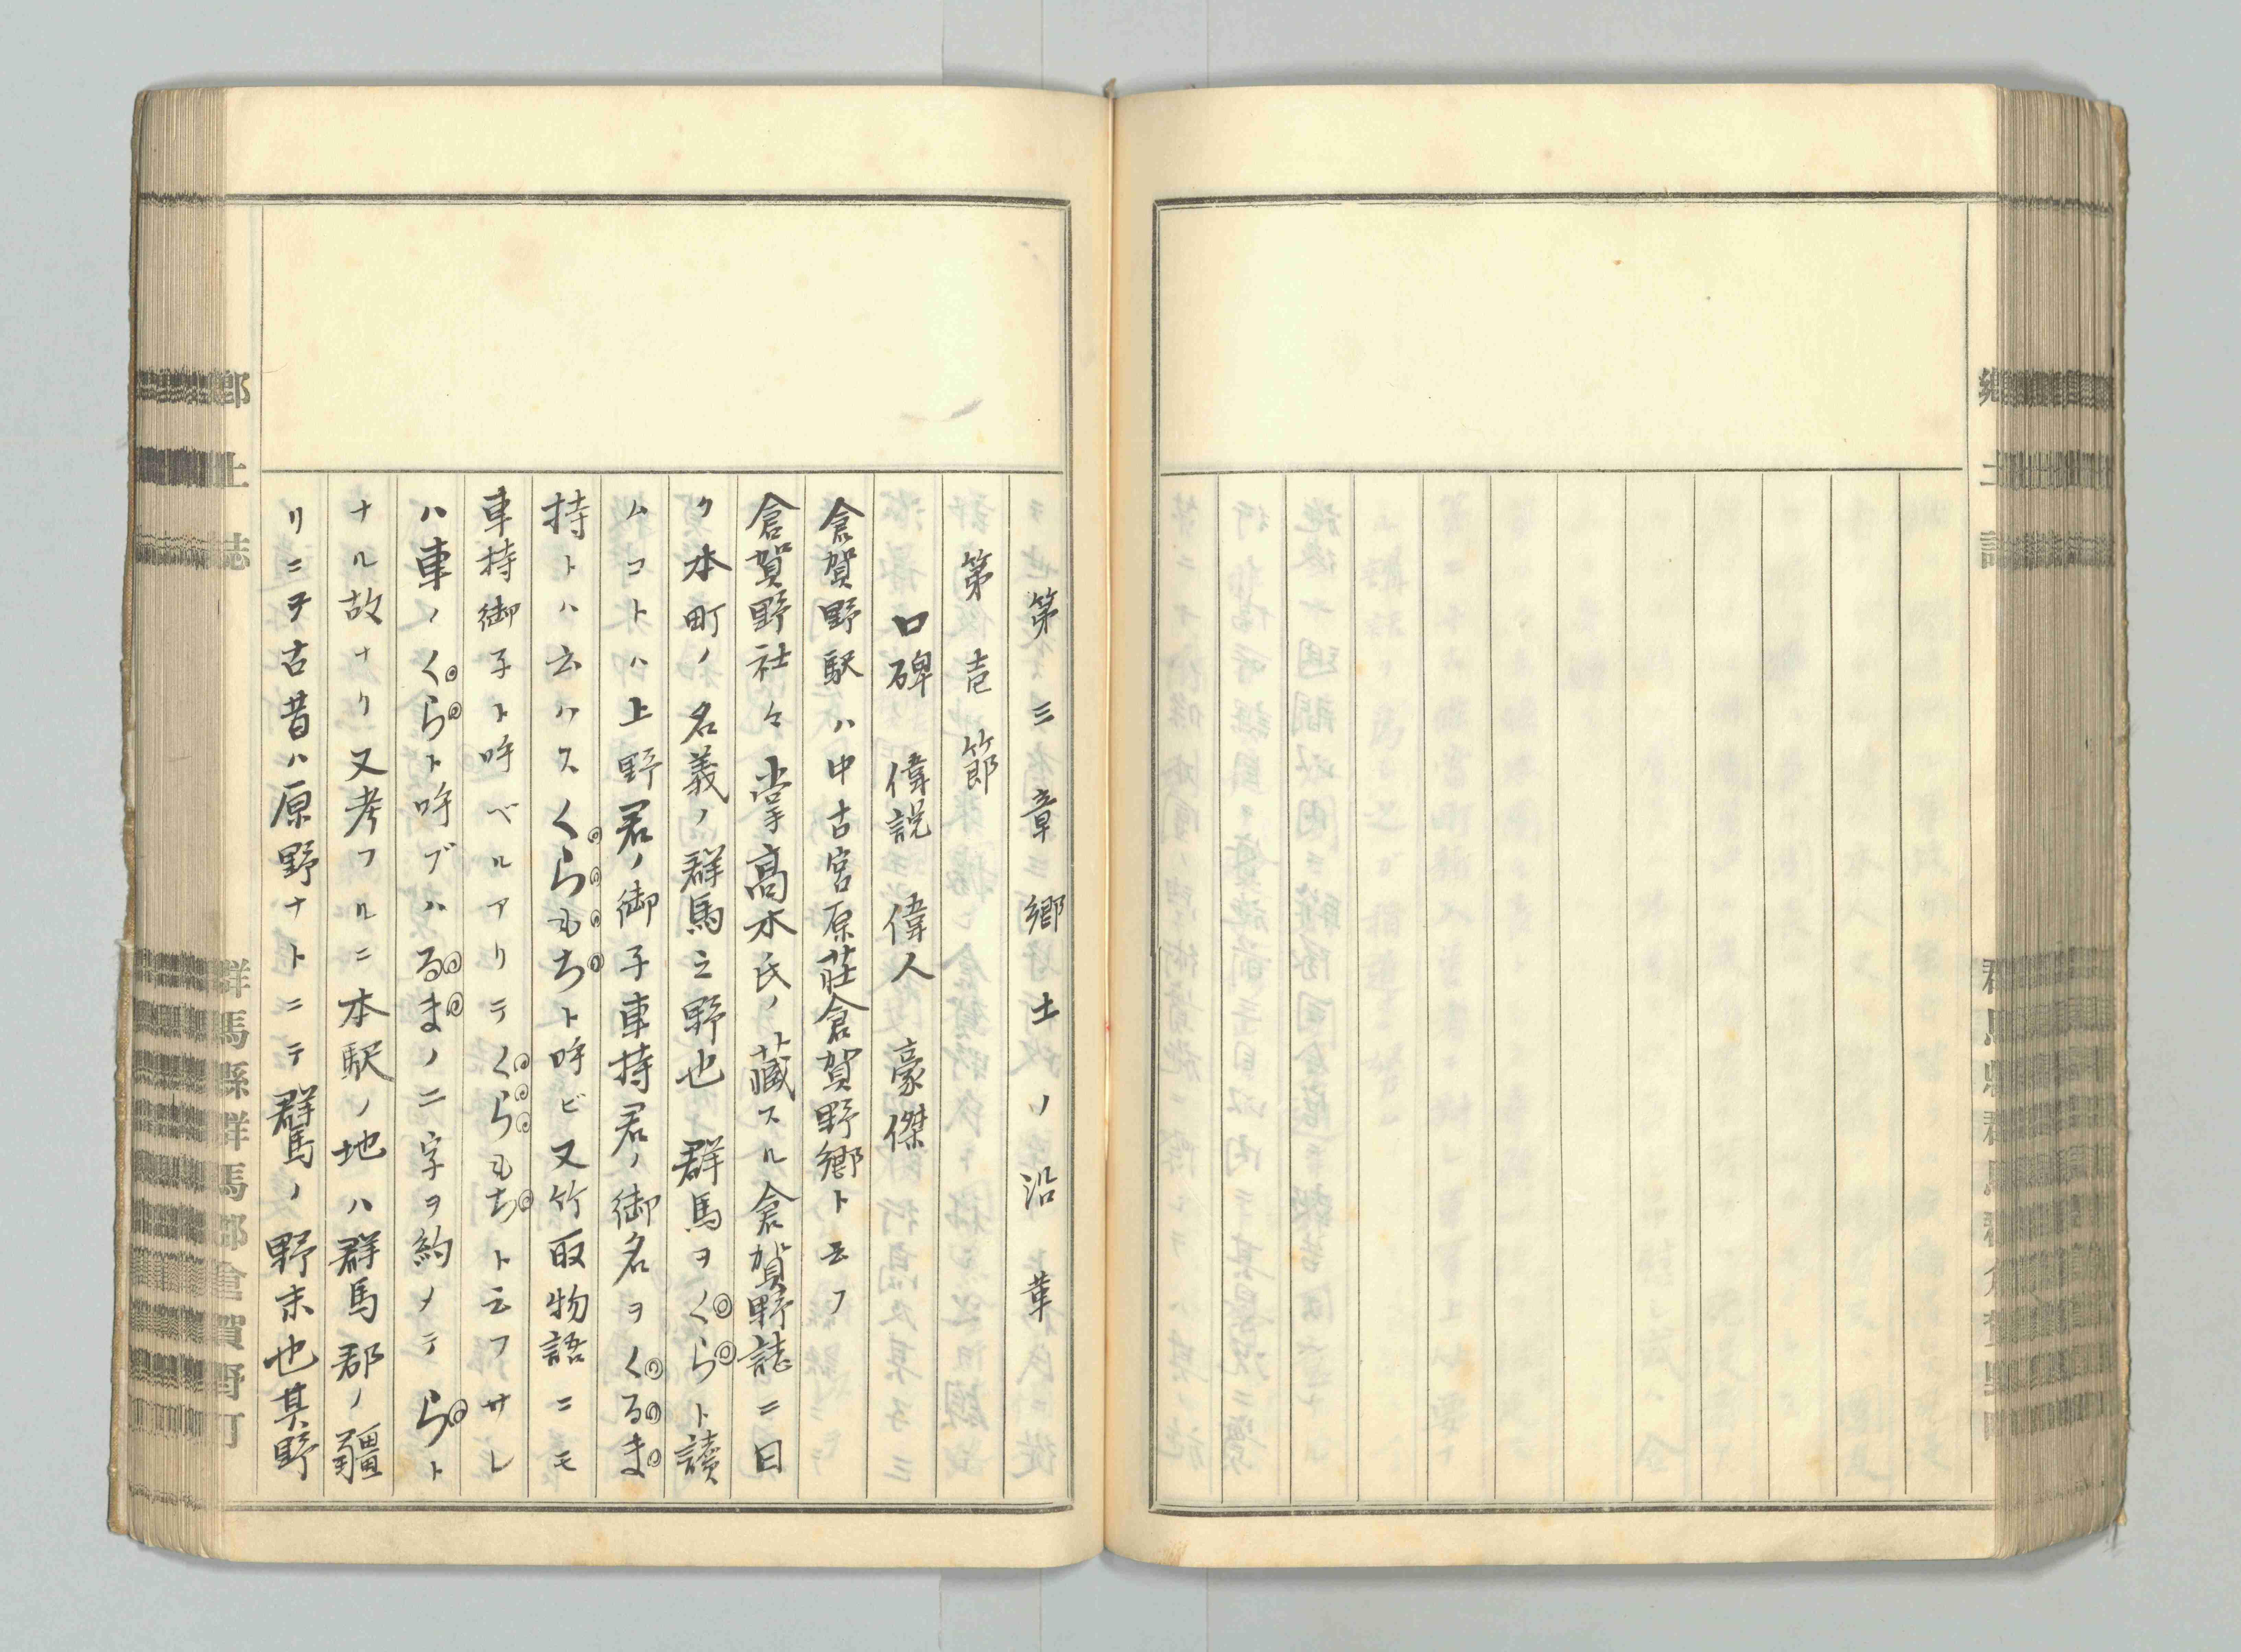 郷土誌
第三章 郷土ノ沿革
第壱節
口碑 偉説 偉人 豪傑
倉賀野駅ハ中古宮原荘倉賀野郷ト云フ
倉賀野社々掌高木氏ノ藏スル倉賀野誌ニ曰
ク本町ノ名義ノ群馬之野也 群馬ヲくらト讀
ムコトハ上野君ノ御子車持君ノ御名ヲくるま
持トハ云ハスくらもちト呼ビ又竹取物語ニモ
車持御子ト呼ベルアリテくらもちト云フサレ
ハ車ノくらト呼ブハるまノ二字ヲ約メテらト
ナル故ナリ又考フルニ本駅ノ地ハ群馬郡ノ疆
リニヲ古昔ハ原野ナトニテ群馬ノ野末也其野
郷土誌
群馬縣群馬郡倉賀野町